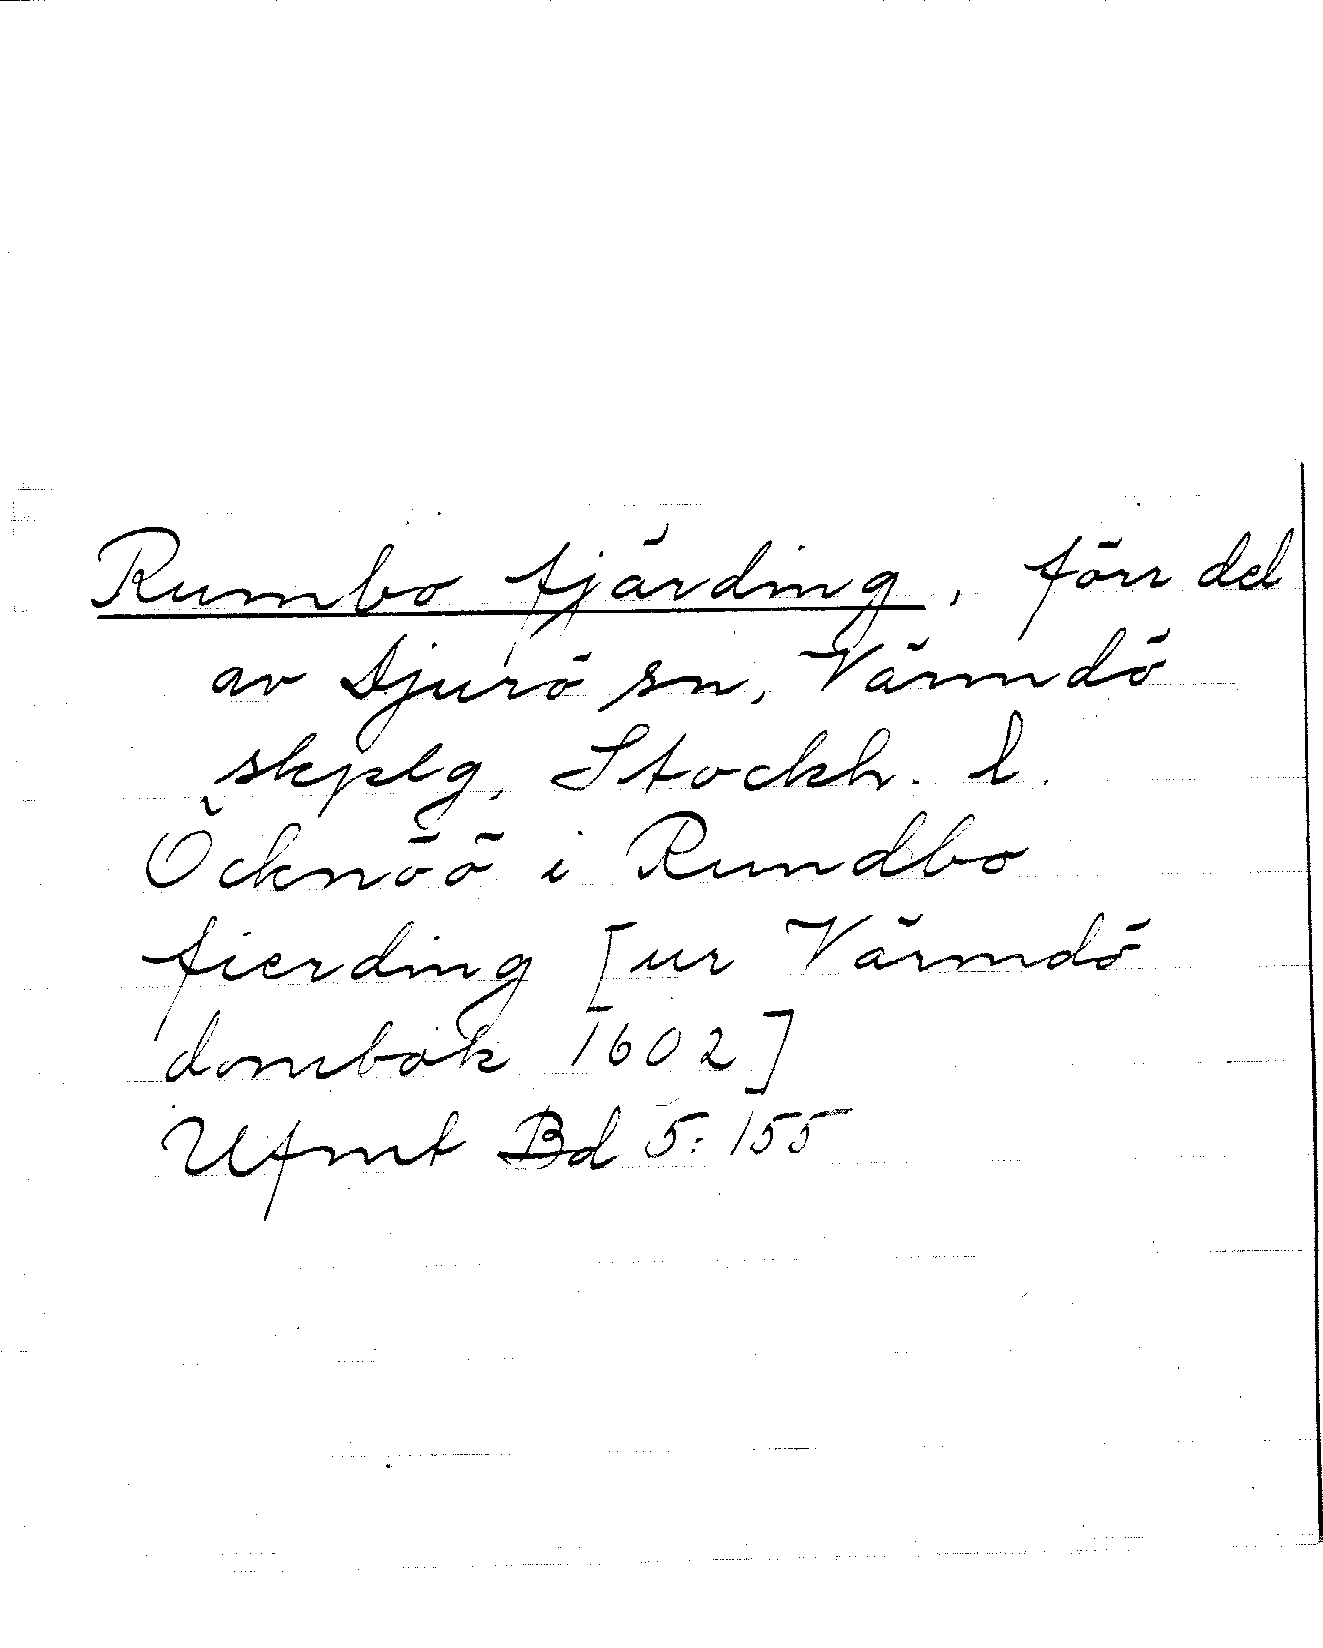 Rumbo fjärding, förr del
av Djurö sn, Värmdö
skplg, Stockh. l.
Öcknöö i Rundbo
fierding [ur Värmdö
dombok 1602]
Ufmt Bd 5: 155